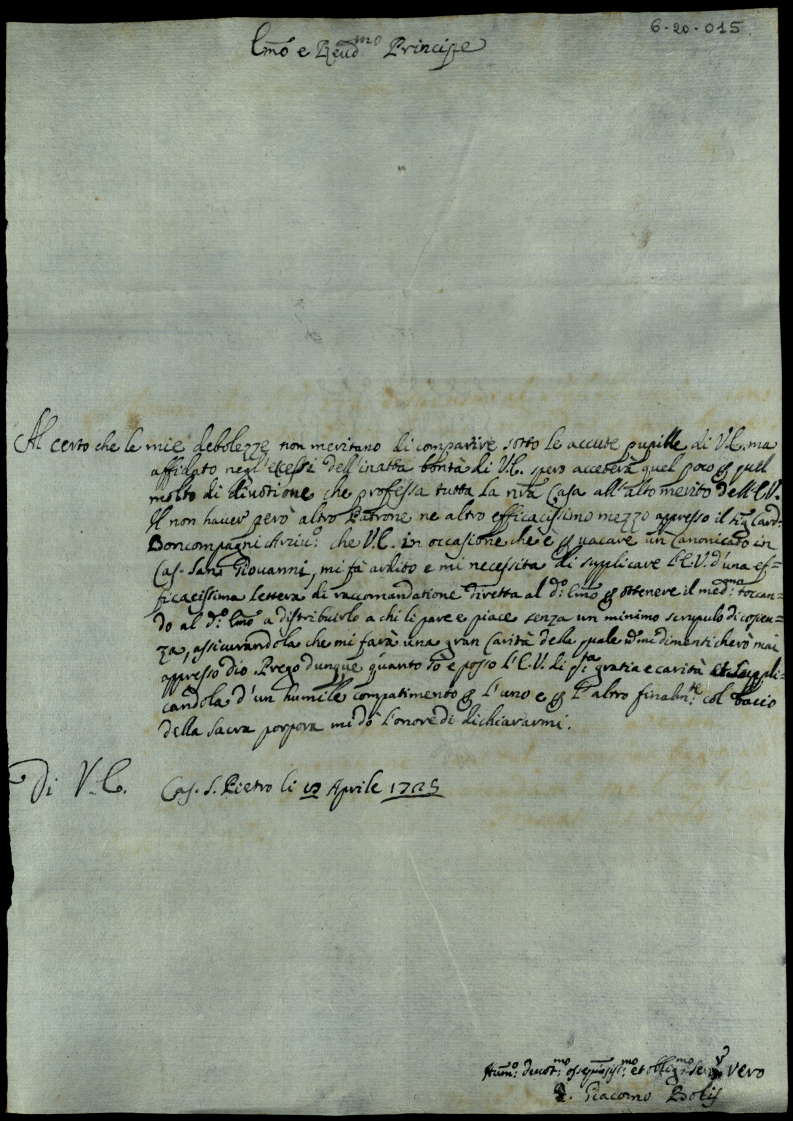 6-20-015
Emõ e Reud.mo Principe
Al certo che le mie debolezze non meritano di comparire sotto le accute pupille di V.E. ma
affidato negl'ecessi dell'inatta bontà di V.E. spero acceterà quel poco, e quel
molto di divotione che professa tutta la nr̃a Casa all'alto merito dell'E.V.
Il non haver però altro Patrone ne altro efficacissimo mezzo appresso il Card.
Boncompagni Arciv.o che V.E. in occasione che è p vacare un Canonicato in
Cas. San Giovanni, mi fà ardito e mi necessita di supplicare l'E.V. d'una ef=
ficacissima lettera di raccomandatione diretta al d.o Emõ p ottenere il med.mo toccan=
do al d.o Emõ a distribuirlo a chi li pare e piace senza un minimo scrupulo di
za, assicurandola che mi farà una gran carità della quale mi dimenticherò mai
appresso Dio. Prego dunque quanto sò e posso l'E.V. di gratia e carità suppli=
candola d'un humile compatimento p l'uno e p l'altro finalm.te col bacio
della sacra porpora mi dò l'onore di dichiararmi.
Di V.E. Cas. S. Pietro li Aprile 1725
Hum.o deuot.mo et oblig.mo ser. vero
Giacomo Bolis